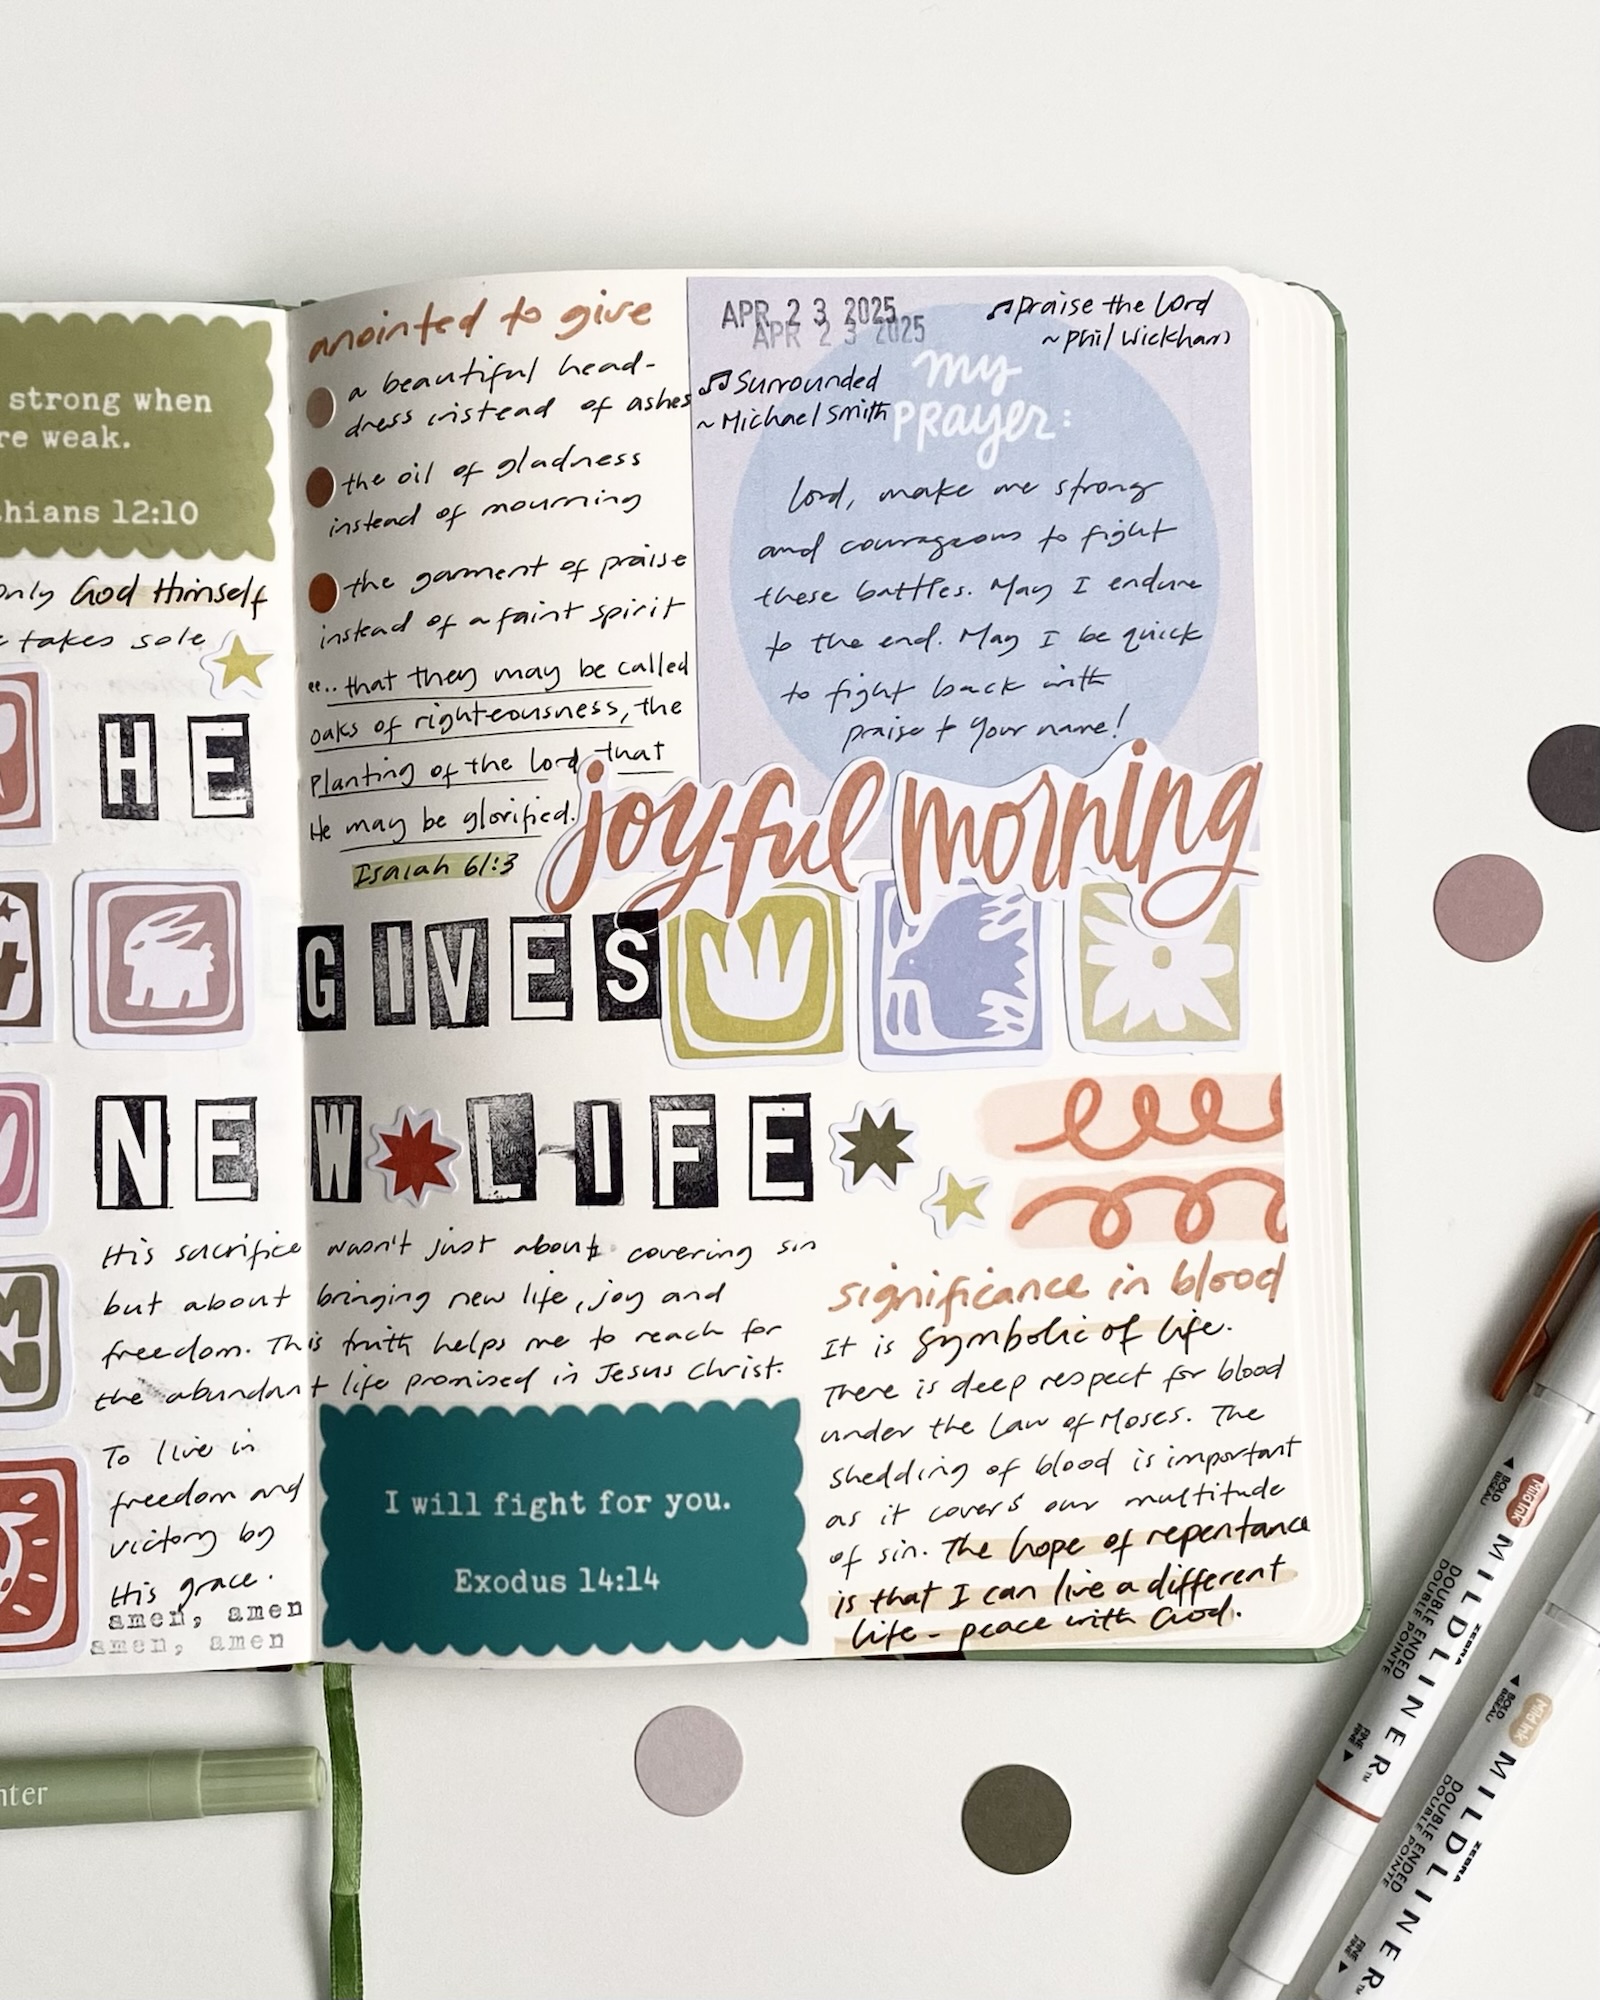 strong when
re weak.
thians 12:10
only God Himself
takes sole
HE
GIVES
NEW LIFE
His sacrifice wasn't just about covering sin
but about bringing new life, joy and
freedom. This truth helps me to reach for
the abundant life promised in Jesus Christ.
To live in
freedom and
victory by
His grace.
amen, amen
amen, amen
anointed to give
a beautiful head-
dress instead of ashes
the oil of gladness
instead of mourning
the garment of praise
instead of a faint spirit
"...that they may be called
oaks of righteousness, the
Planting of the Lord, that
He may be glorified.
Isaiah 61:3
APR 23 2025
APR 23 2025
♫ praise the Lord
~ Phil Wickham
♫ Surrounded
~ Michael Smith
my
PRayer:
Lord, make me strong
and courageous to fight
these battles. May I endure
to the end. May I be quick
to fight back with
praise to Your name!
joyful morning
I will fight for you.
Exodus 14:14
significance in blood
It is symbolic of life.
There is deep respect for blood
under the Law of Moses. The
shedding of blood is important
as it covers our multitude
of sin. The hope of repentance
is that I can live a different
life - peace with God.
nter
BOLD
BISEAU
Mild Ink
ZEBRA
MILDLINER™
DOUBLE ENDED
DOUBLE POINTE
FINE
FINE
BOLD
BISEAU
Mild Ink
ZEBRA
MILDLINER™
DOUBLE ENDED
DOUBLE POINTE
FINE
FINE